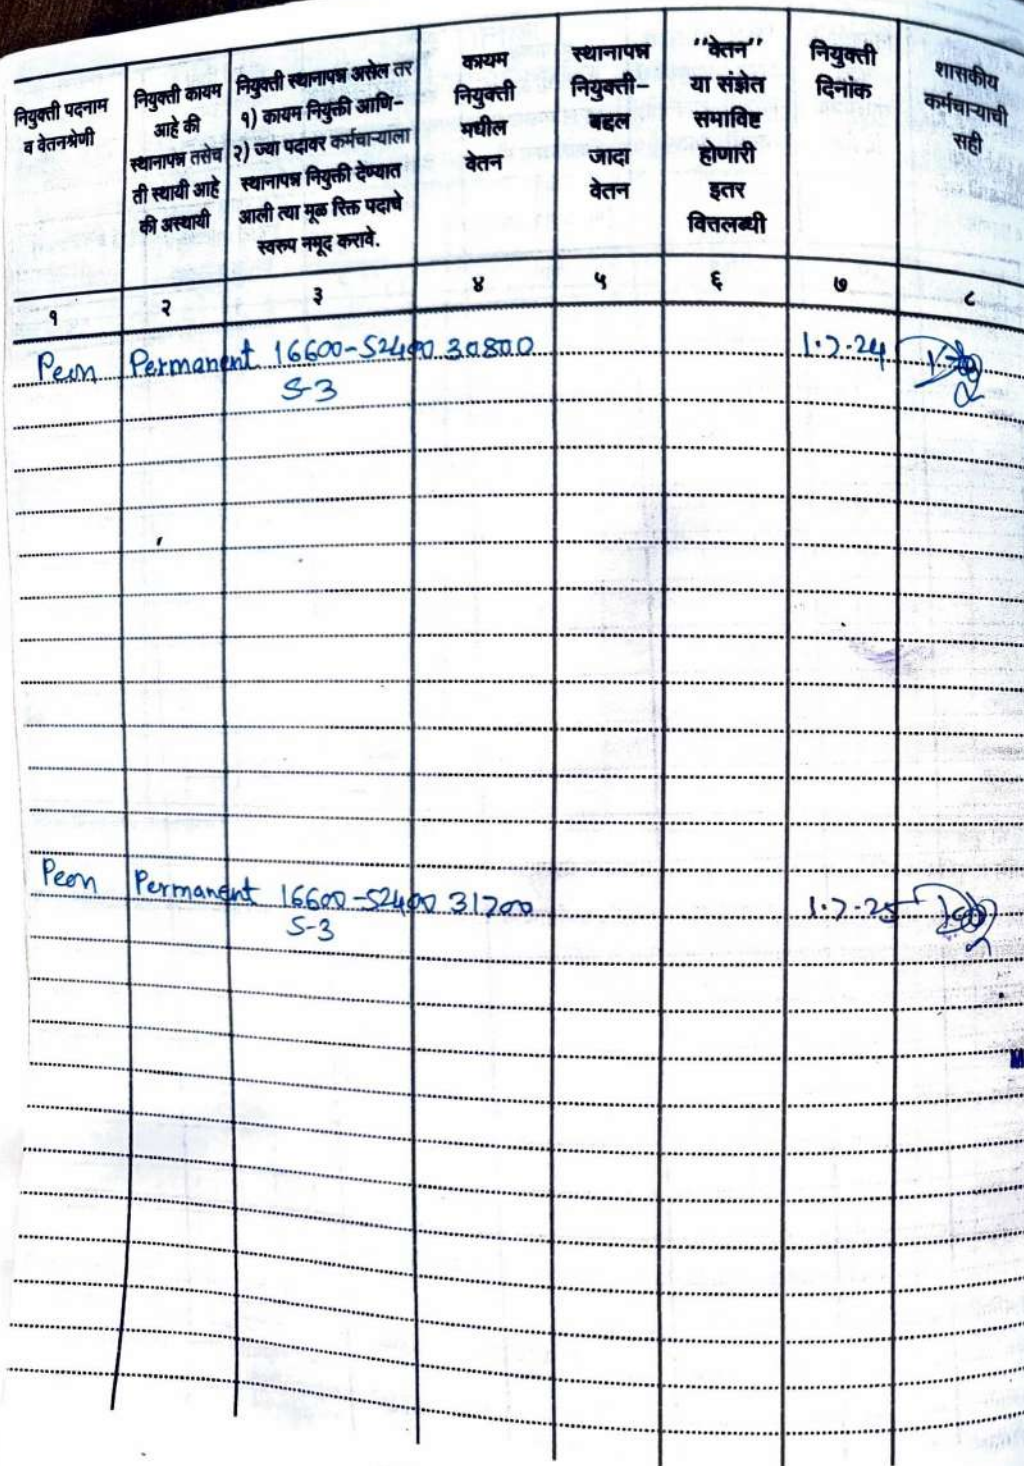 नियुक्ती पदनाम
व वेतनश्रेणी
नियुक्ती कायम
आहे की
स्थानापन्न तसेच
ती स्थायी आहे
की अस्थायी
नियुक्ती स्थानापन्न असेल तर
१) कायम नियुक्ती आणि-
२) ज्या पदावर कर्मचाऱ्याला
स्थानापन्न नियुक्ती देण्यात
आली त्या मूळ रिक्त पदाचे
स्वरुप नमूद करावे.
कायम
नियुक्ती
मधील
वेतन
स्थानापन्न
नियुक्ती-
बद्दल
जादा
वेतन
"वेतन"
या संज्ञेत
समाविष्ट
होणारी
इतर
वित्तलब्धी
नियुक्ती
दिनांक
शासकीय
कर्मचाऱ्याची
सही
१ २ ३ ४ ५ ६ ७ ८
Peon Permanent 16600-52400 30800 1.7.24
S-3
Peon Permanent 16600-52400 31700 1.7.25
S-3